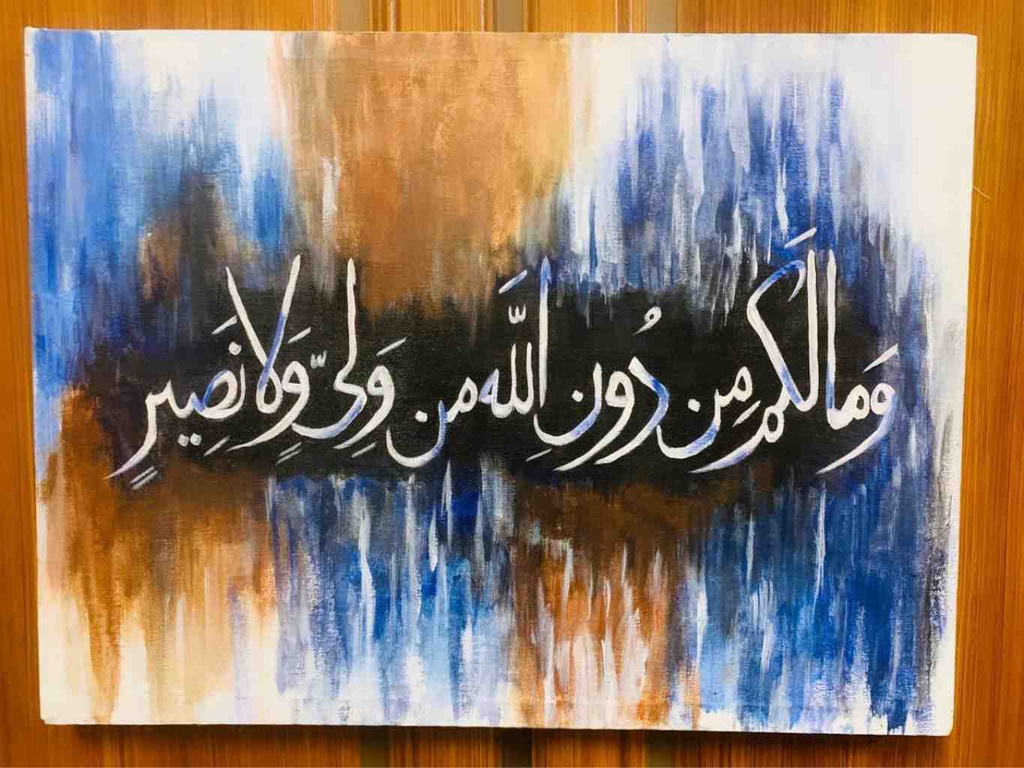 وَمَا لَكُم مِن دُونِ اللَّهِ مِن وَلِىٍّ وَلَا نَصِيرٍ